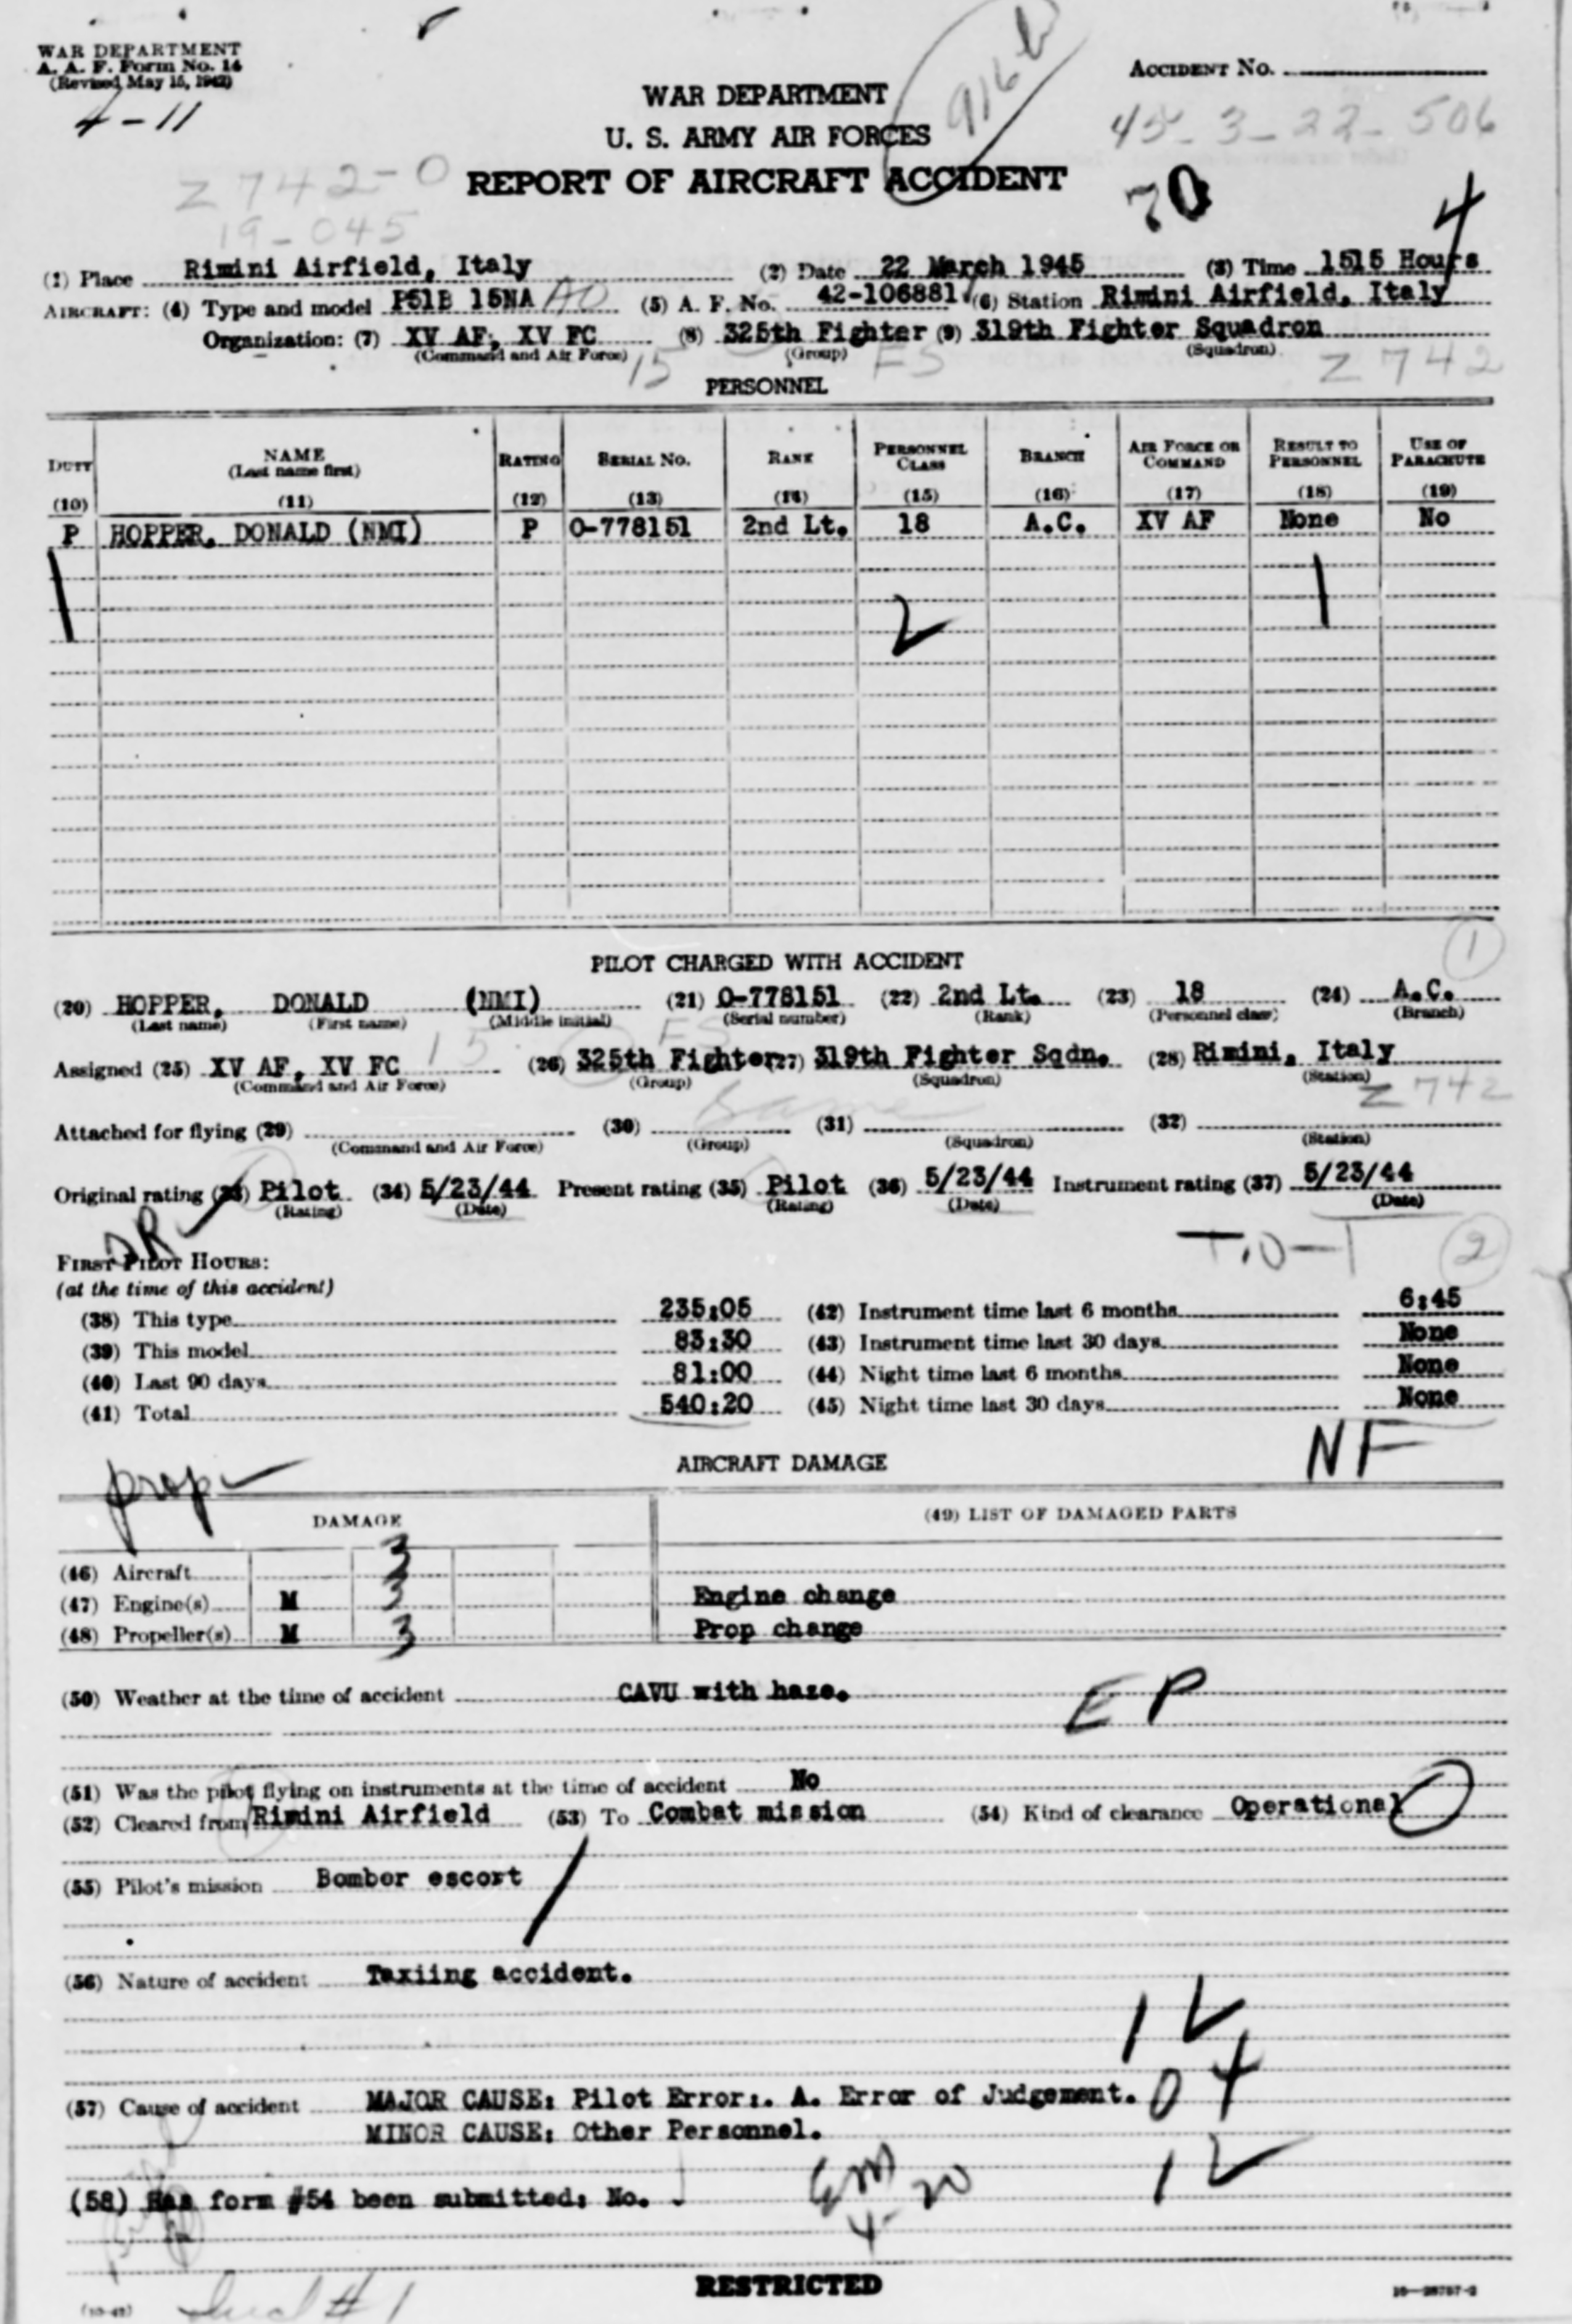 WAR DEPARTMENT
A. A. F. Form No. 14
(Revised May 15, 1942)
4-11
ACCIDENT No.
WAR DEPARTMENT
U. S. ARMY AIR FORCES
REPORT OF AIRCRAFT ACCIDENT
45-3-22-506
Z742-0
19-045
70
4
(1) Place Rimini Airfield, Italy (2) Date 22 March 1945 (3) Time 1515 Hours
AIRCRAFT: (4) Type and model P51B 15NA (5) A. F. No. 42-106881 (6) Station Rimini Airfield, Italy
Organization: (7) XV AF, XV FC (8) 325th Fighter (9) 319th Fighter Squadron
(Command and Air Force) 15 (Group) FS (Squadron) Z742
PERSONNEL
DUTY NAME (Last name first) RATING SERIAL NO. RANK PERSONNEL CLASS BRANCH AIR FORCE OR COMMAND RESULT TO PERSONNEL USE OF PARACHUTE
(10) (11) (12) (13) (14) (15) (16) (17) (18) (19)
P HOPPER, DONALD (NMI) P O-778151 2nd Lt. 18 A.C. XV AF None No
1 2 1
1
PILOT CHARGED WITH ACCIDENT
(20) HOPPER, DONALD (NMI) (21) O-778151 (22) 2nd Lt. (23) 18 (24) A.C.
(Last name) (First name) (Middle initial) (Serial number) (Rank) (Personnel class) (Branch)
Assigned (25) XV AF, XV FC 15 (26) 325th Fighter (27) 319th Fighter Sqdn. (28) Rimini, Italy
(Command and Air Force) (Group) (Squadron) (Station)
Z742
Same
Attached for flying (29) (30) (31) (32)
(Command and Air Force) (Group) (Squadron) (Station)
Original rating (33) Pilot (34) 5/23/44 Present rating (35) Pilot (36) 5/23/44 Instrument rating (37) 5/23/44
(Rating) (Date) (Rating) (Date) (Date)
2
FIRST PILOT HOURS:
(at the time of this accident)
(38) This type 235:05 (42) Instrument time last 6 months 6:45
(39) This model 83:30 (43) Instrument time last 30 days None
(40) Last 90 days 81:00 (44) Night time last 6 months None
(41) Total 540:20 (45) Night time last 30 days None
NF
prop
AIRCRAFT DAMAGE
DAMAGE (49) LIST OF DAMAGED PARTS
(46) Aircraft 3
(47) Engine(s) M 3 Engine change
(48) Propeller(s) M 3 Prop change
(50) Weather at the time of accident CAVU with haze.
EP
(51) Was the pilot flying on instruments at the time of accident No
(52) Cleared from Rimini Airfield (53) To Combat mission (54) Kind of clearance Operational
(55) Pilot's mission Bomber escort
(56) Nature of accident Taxiing accident.
(57) Cause of accident MAJOR CAUSE: Pilot Error:. A. Error of Judgement. 04
MINOR CAUSE: Other Personnel.
(58) Has form #54 been submitted: No.
RESTRICTED